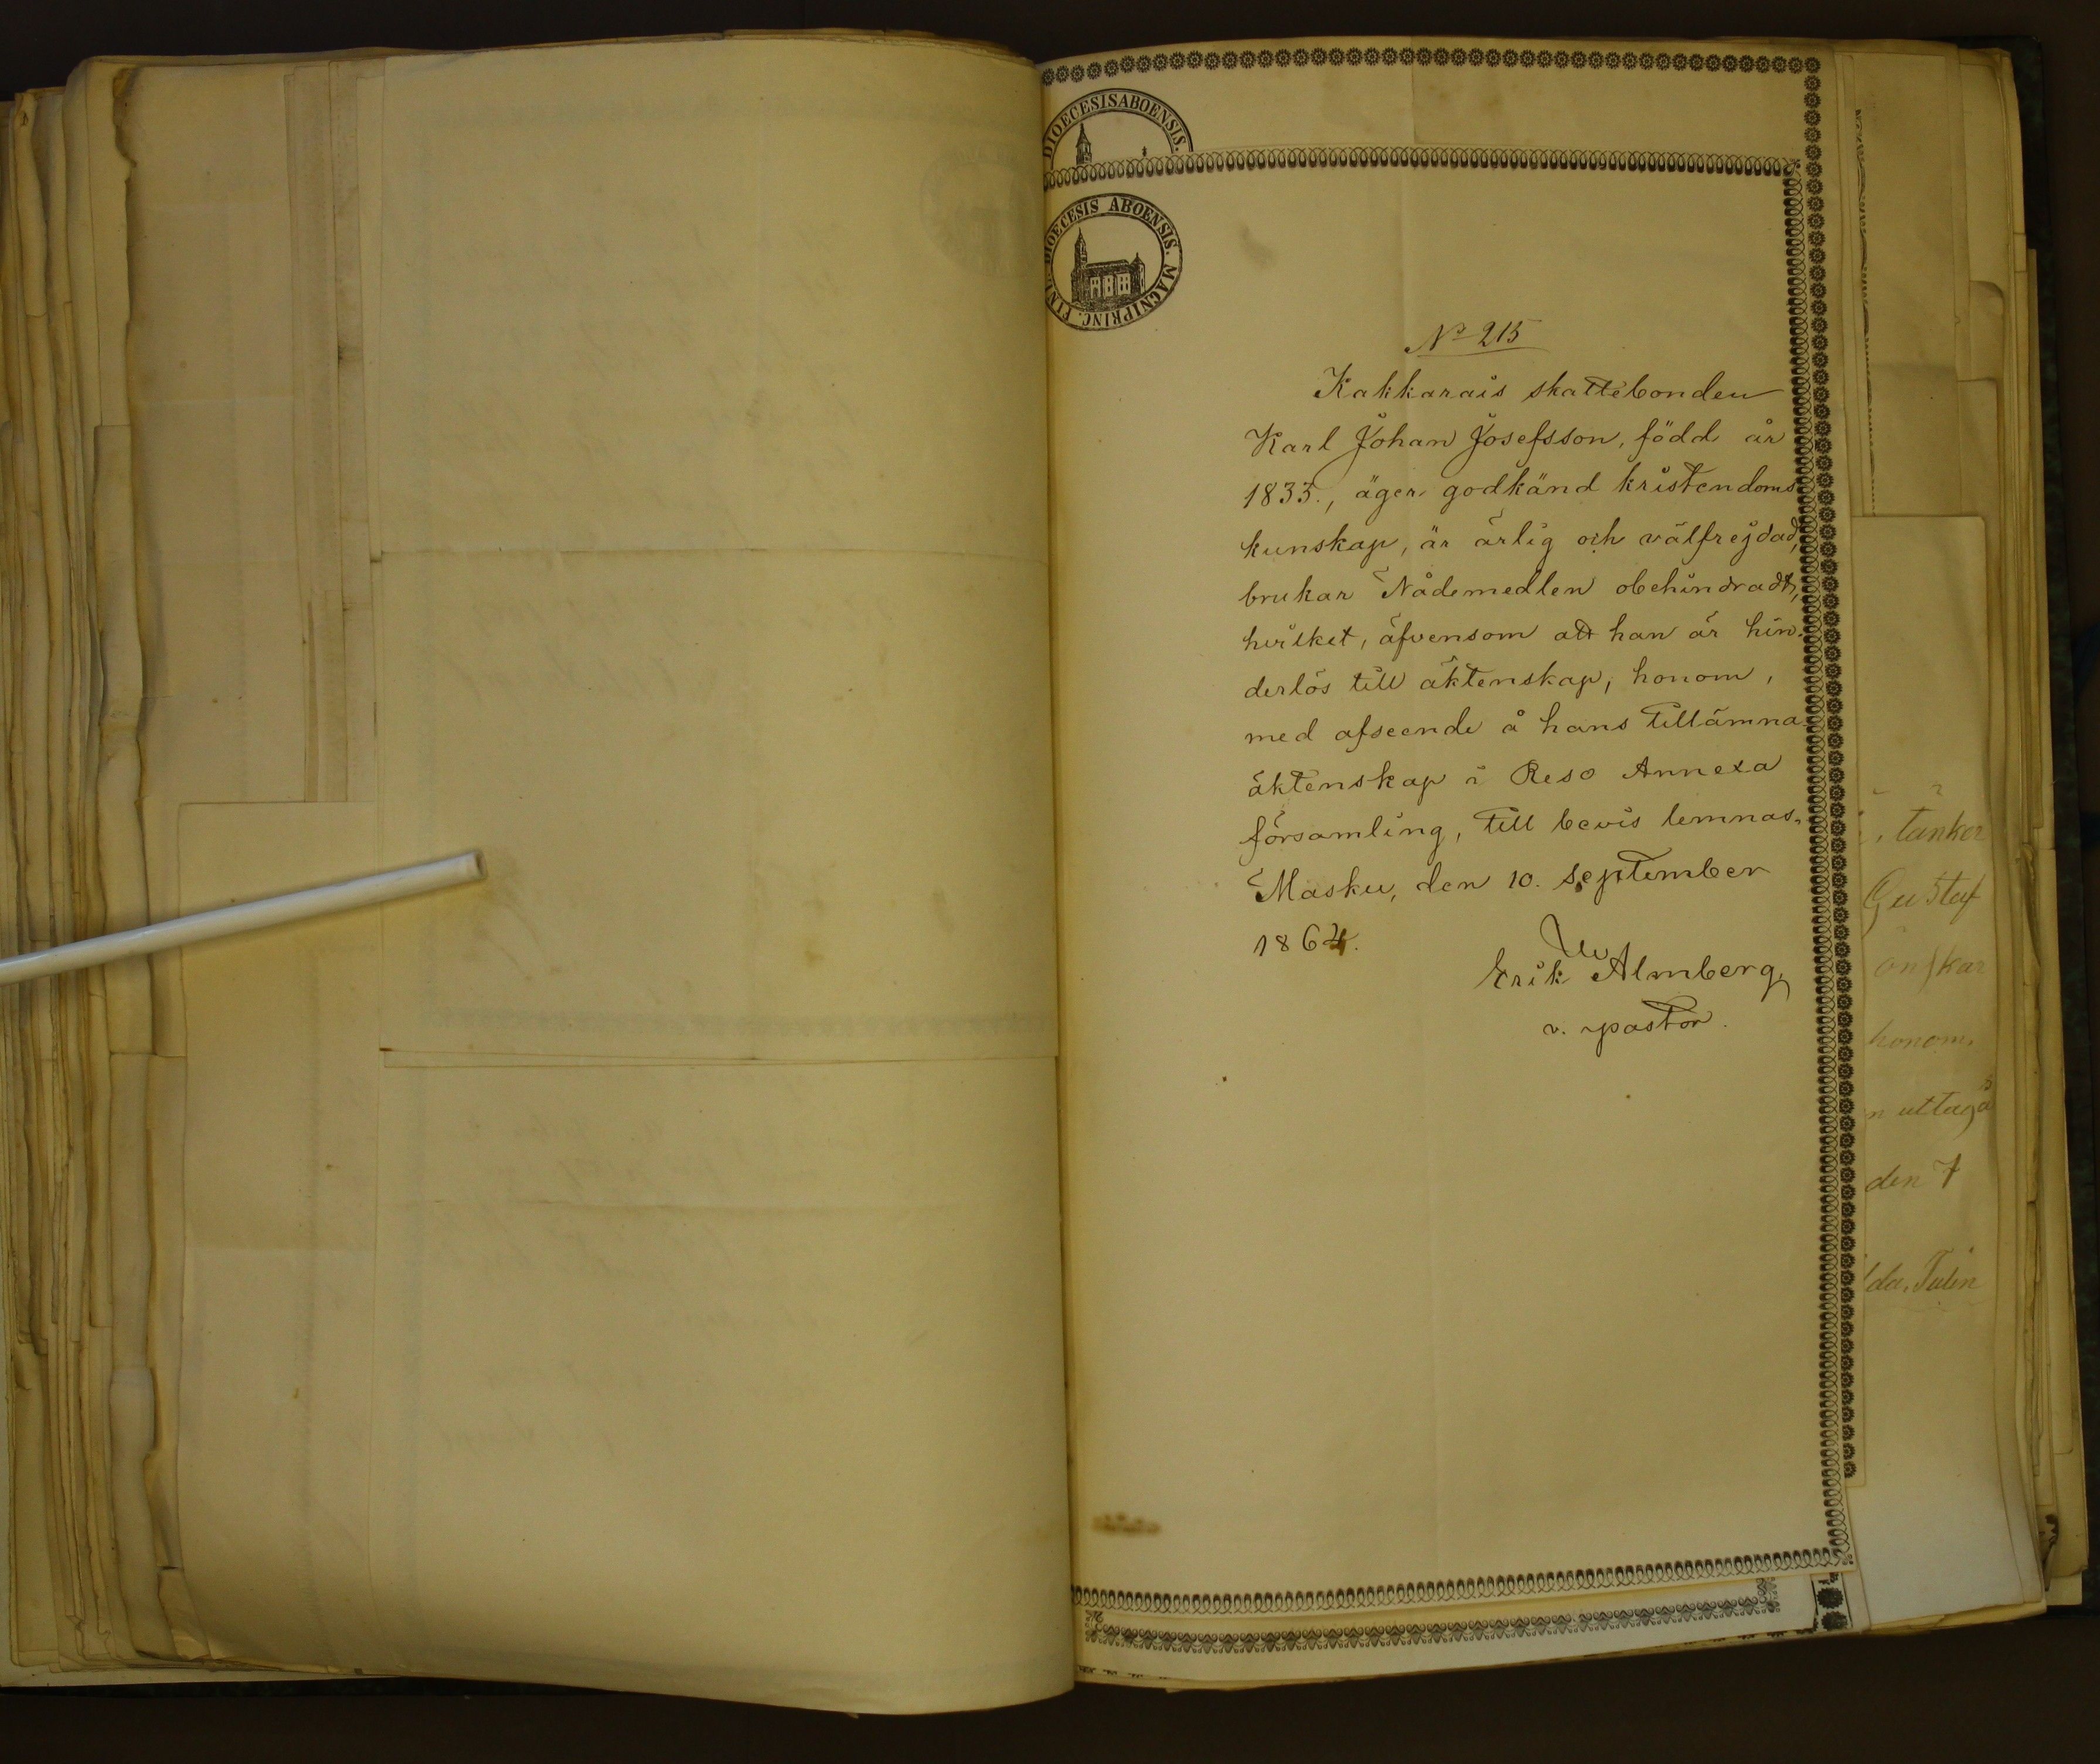 DIOECESIS ABOENSIS.
DIOECESIS ABOENSIS. MAGNIPRINC. FINL.
No 215
Kakkarais skattebonden
Karl Johan Josefsson, född år
1833., äger godkänd kristendoms
kunskap, är ärlig och välfrejdad,
brukar Nådemedlen obehindradt,
hvilket, äfvensom att han är hin-
derlös till äktenskap, honom,
med afseende å hans tillämna
äktenskap i Reso Annexa
församling, till bevis lemnas.
Masku, den 10. september
1864.
Erik Almberg,
v. pastor.
tänker
Gustaf
önskar
honom,
n uttaga
den 7